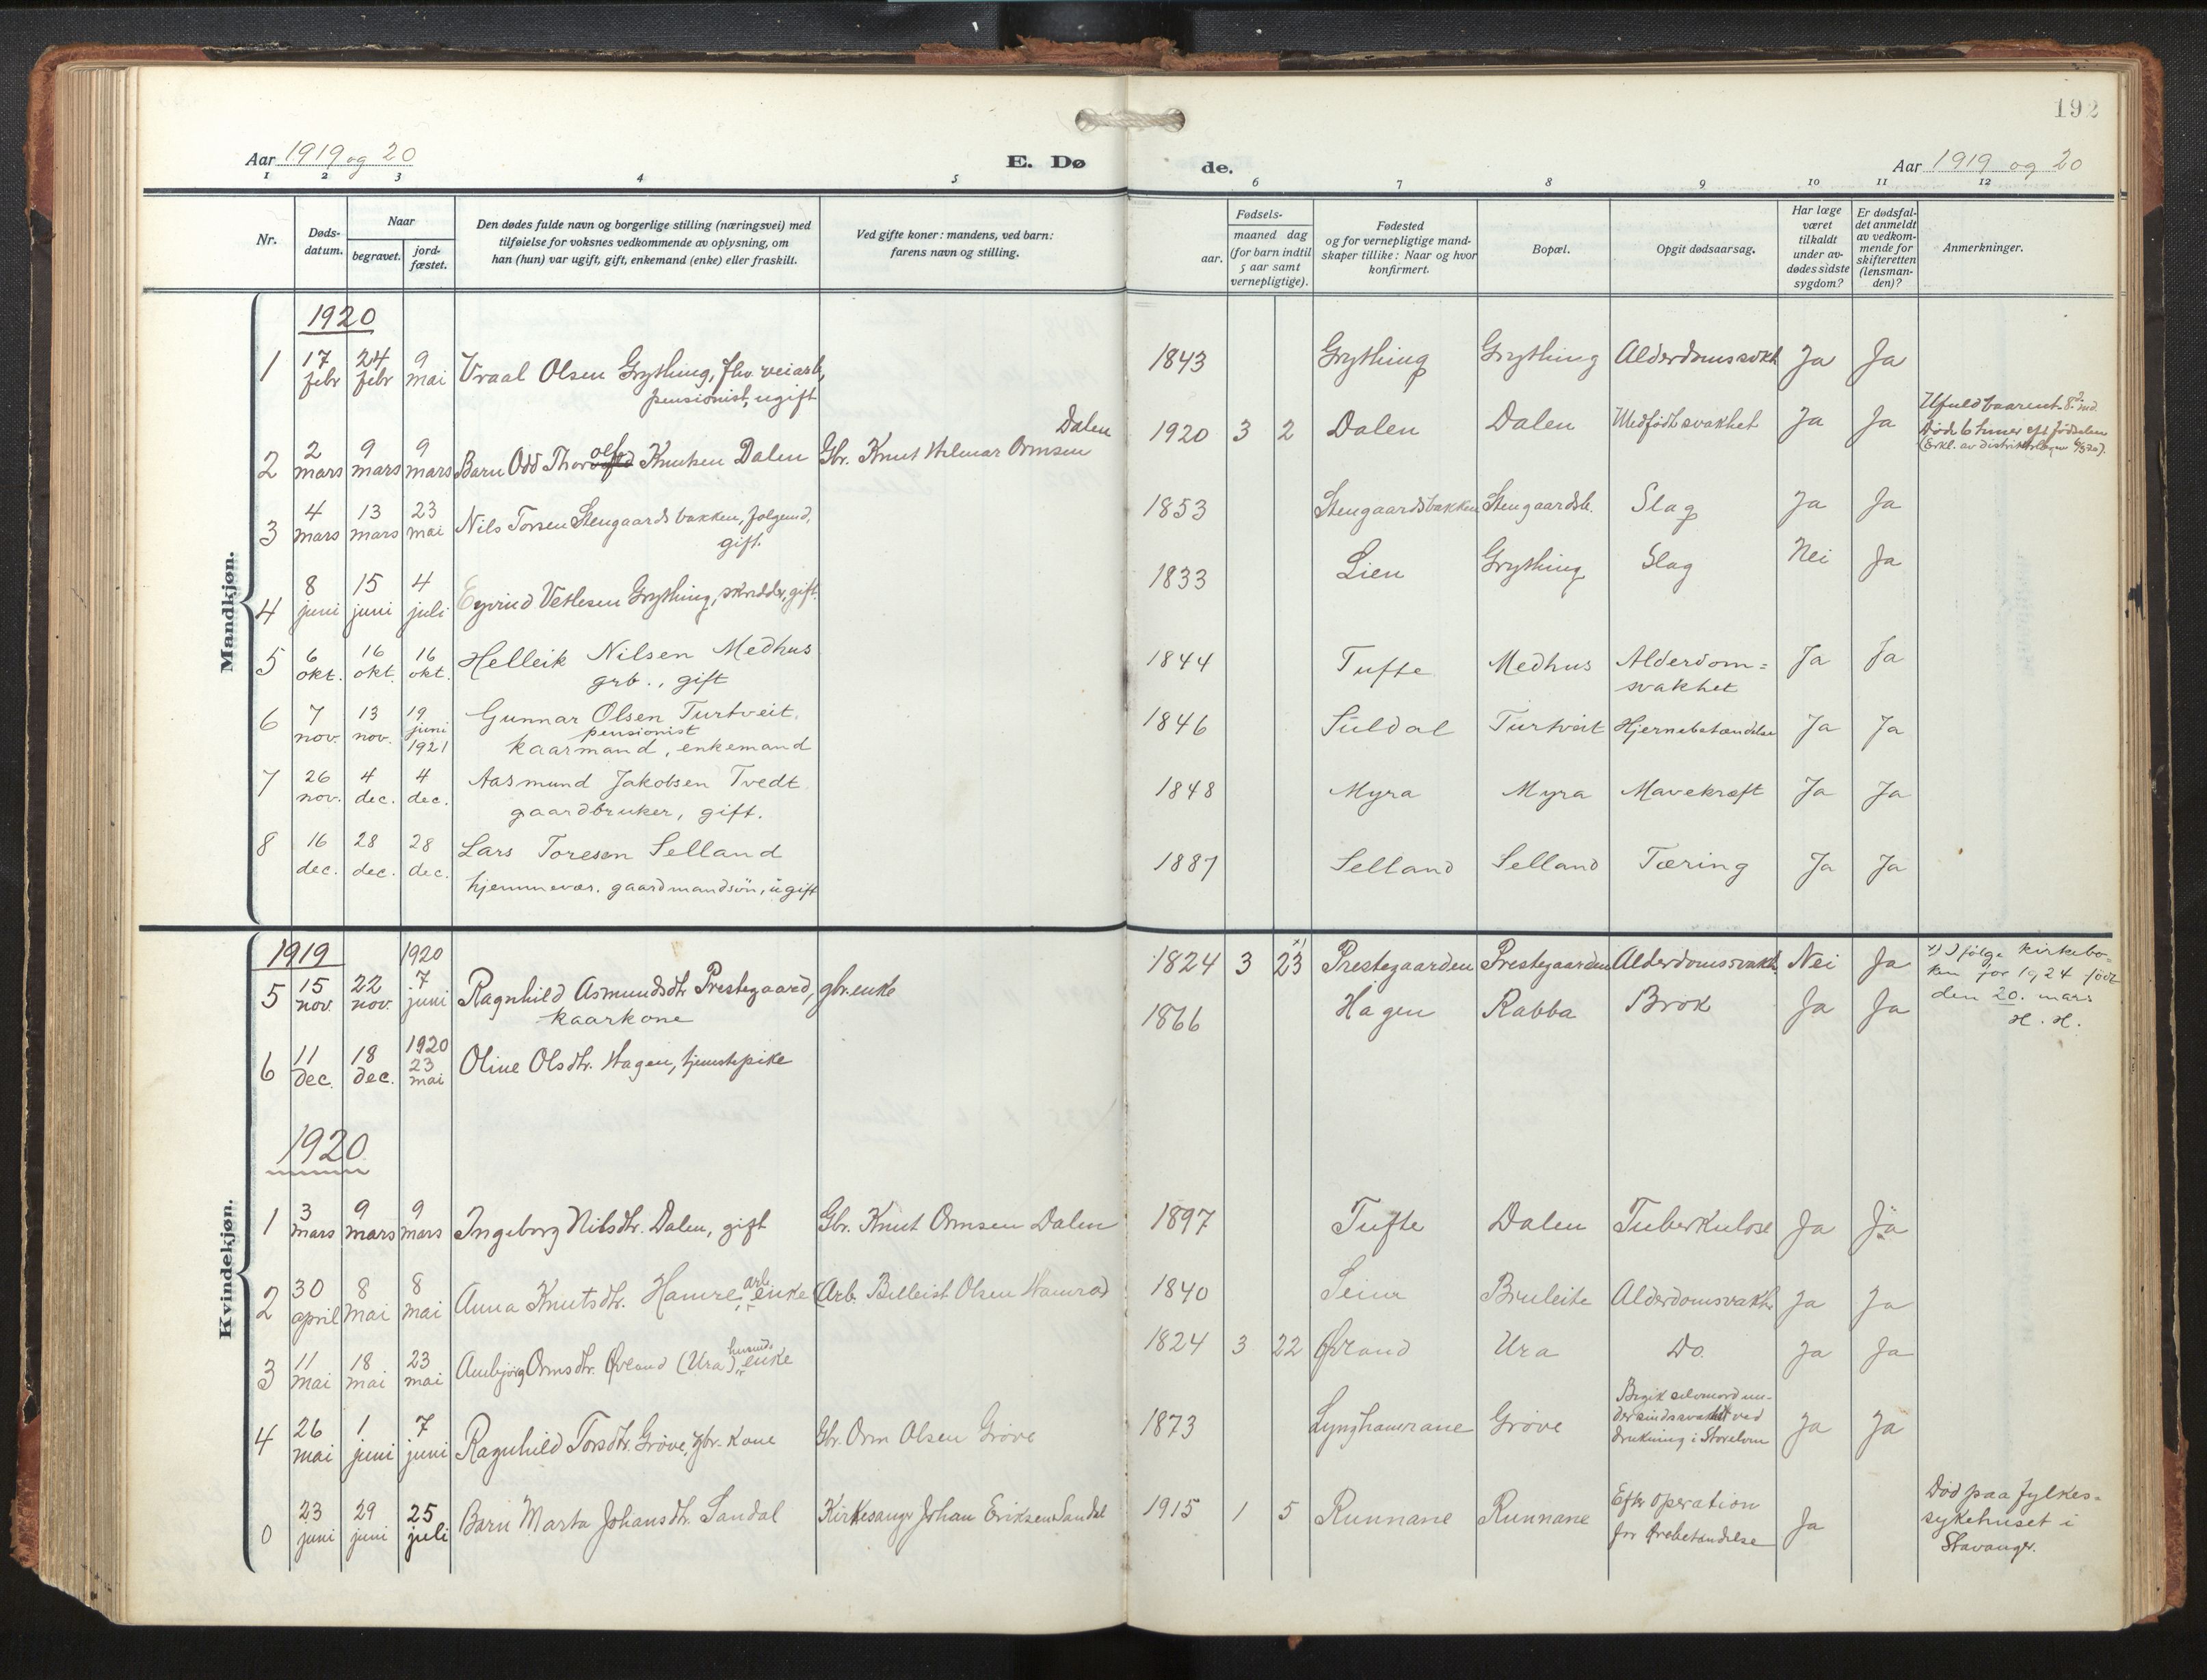 192
Aar 1919 og 20 E. Dø de. Aar 1919 og 20
1 2 3 4 5 6 7 8 9 10 11 12
Nr.
Døds-
datum.
Naar
begravet.
jord-
fæstet.
Den dødes fulde navn og borgerlige stilling (næringsvei) med
tilføielse for voksnes vedkommende av oplysning, om
han (hun) var ugift, gift, enkemand (enke) eller fraskilt.
Ved gifte koner: mandens, ved barn:
farens navn og stilling.
Fødsels-
aar.
maaned dag
(for barn indtil
5 aar samt
vernepligtige).
Fødested
og for vernepligtige mand-
skaper tillike: Naar og hvor
konfirmert.
Bopæl.
Opgit dødsaarsag.
Har læge
været
tilkaldt
under av-
dødes sidste
sygdom?
Er dødsfal-
det anmeldt
av vedkom-
mende for
skifteretten
(lensman-
den)?
Anmerkninger.
Mandkjøn.
1920
1 17 febr 24 febr 9 mai Vraal Olsen Grything, fhv. veiarb, 1843 Grything Grything Alderdomssvakh Ja Ja
pensionist, ugift
2 2 mars 9 mars 9 mars Barn Odd Thorolf Knutsen Dalen Gbr. Knut Hilmar Ormsen Dalen 1920 3 2 Dalen Dalen Medfødt svakhet Ja Ja
Ufuldbaarent 8. md.
Døde 6 timer eft fødselen
(Erkl. av distriktslægen 6/3 20).
3 4 mars 13 mars 23 mai Nils Torsen Stengaardsbakken, folgemd, 1853 Stengaardsbakken Stengaardsb. Slag Ja Ja
gift.
4 8 juni 15 juni 4 juli Eyvind Vetlesen Grything, skrædder, gift. 1833 Lien Grything Slag Nei Ja
5 6 okt. 16 okt. 16 okt. Helleik Nilsen Medhus 1844 Tufte Medhus Alderdom=
svakhet Ja Ja
grb., gift
6 7 nov. 13 nov. 19 juni 1921 Gunnar Olsen Turtveit. 1846 Suldal Turtveit Hjernebetændelse Ja Ja
pensionist
kaarmand, enkemand
7 26 nov. 4 dec. 4 dec. Aasmund Jakobsen Tvedt 1848 Myra Myra Mavekræft Ja Ja
gaardbruker, gift.
8 16 dec. 28 dec. 28 dec. Lars Toresen Selland 1887 Selland Selland Tæring Ja Ja
hjemmevær. gaardmandsøn, ugift
Kvindekjøn.
1919
5 15 nov. 22 nov. 1920 7 juni Ragnhild Asmundsdtr Prestegaard, gbr.enke 1824 3 23 x) Prestegaarden Prestegaarden Alderdomssvakh. Nei Ja
kaarkone
x) Ifølge kirkebo=
ken for 1924 født
den 20. mars
H. H.
6 11 dec. 18 dec. 1920 23 mai Oline Olsdtr. Hagen, tjenestepike 1866 Hagen Rabba Brok Ja Ja
1920
1 3 mars 9 mars 9 mars Ingeborg Nilsdtr. Dalen, gift Gbr. Knut Ormsen Dalen 1897 Tufte Dalen Tuberkulose Ja Ja
2 30 april 8 mai 8 mai Anna Knutsdtr. Hamre, arb. enke (Arb. Olsen 1840 Bruleite Alderdomsvakh. Ja Ja
3 11 mai 18 mai 23 mai Ormsdtr. Øvland (Ura) husmds enke 1824 3 22 Øvland Ura Do. Ja Ja
4 26 mai 1 juni 7 juni Ragnhild Torsdtr. Grøve, gbr. kone Gbr. Orm Olsen Grøve 1873 Lynghamrane Grøve Begik selvmord un-
der sindssvakhet ved
drukning i Storelven Ja Ja
0 23 juni 29 juni 25 juli Barn Marta Johansdtr. Sandal Kirkesanger Johan Eriksen Sandal 1915 1 5 Runnane Runnane Efter operation
for ørebetændelse Ja
Død paa fylkes=
sykehuset i
Stavanger.